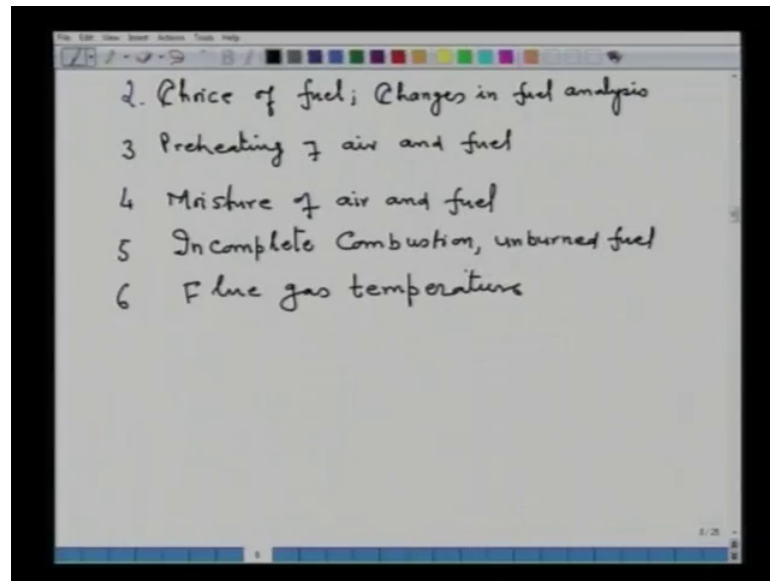 File Edit View Insert Actions Tools Help
2. Choice of fuel; Changes in fuel analysis
3 Preheating of air and fuel
4 Moisture of air and fuel
5 Incomplete Combustion, unburned fuel
6 Flue gas temperature